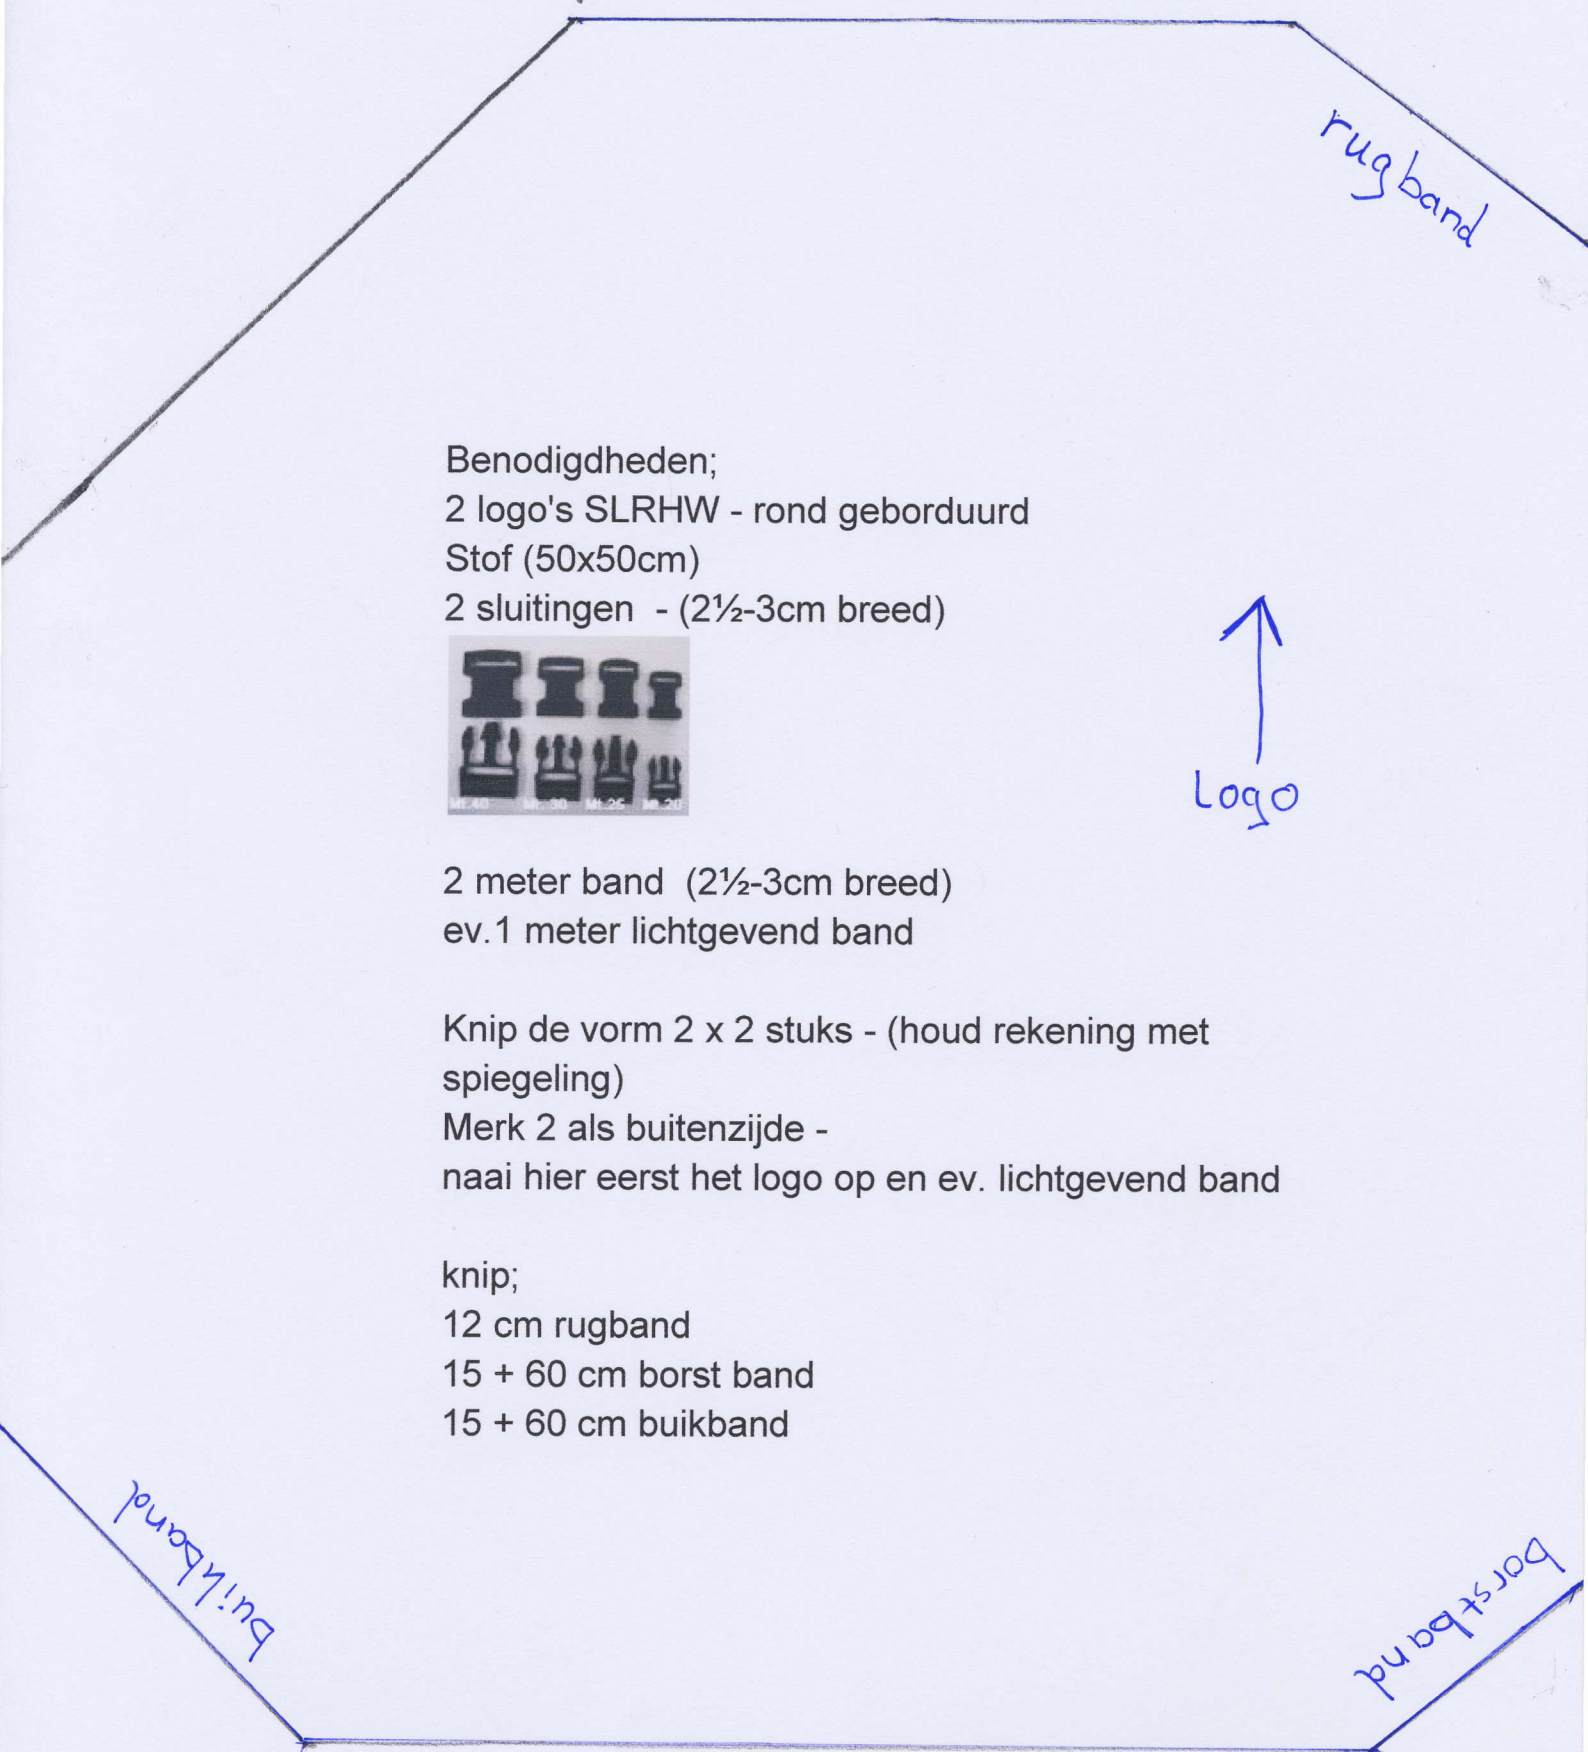 rugband
Benodigdheden;
2 logo's SLRHW - rond geborduurd
Stof (50x50cm)
2 sluitingen - (2½-3cm breed)
Mt.40 Mt.30 Mt.25 Mt.20
Logo
2 meter band (2½-3cm breed)
ev.1 meter lichtgevend band
Knip de vorm 2 x 2 stuks - (houd rekening met
spiegeling)
Merk 2 als buitenzijde -
naai hier eerst het logo op en ev. lichtgevend band
knip;
12 cm rugband
15 + 60 cm borst band
15 + 60 cm buikband
buikband
borstband